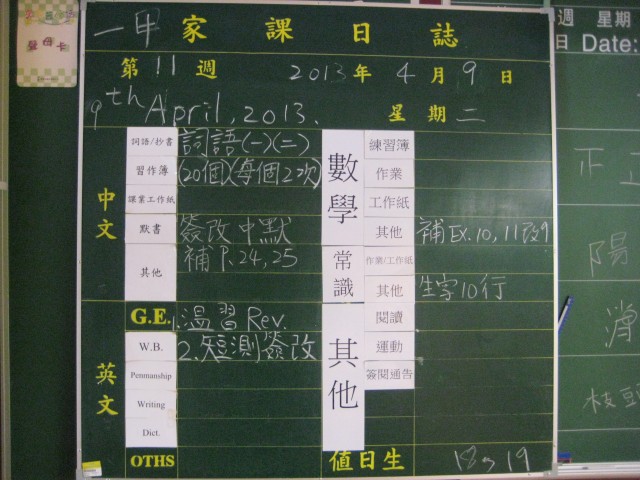 一甲 家課日誌
第 11 週 2013 年 4 月 9 日
9th April, 2013. 星期 二
中文
詞語/抄書 詞語(一)(二)
習作簿 (20個)(每個2次)
課業工作紙
默書 簽改中默
其他 補P.24,25
數學
練習簿
作業
工作紙
其他 補EX.10,11改9
常識
作業/工作紙
其他 生字10行
英文
G.E. 1.溫習Rev.
W.B. 2.短測簽改
Penmanship
Writing
Dict.
OTHS
其他
閱讀
運動
簽閱通告
值日生 18 19
週 星期
日 Date:
正
陽
枝頭